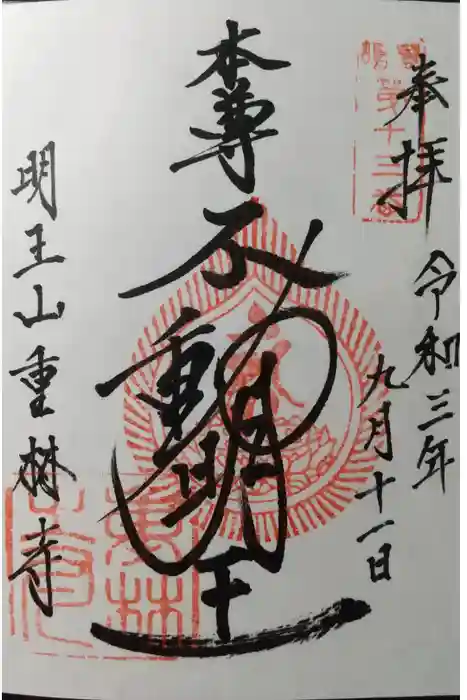 奉拝
令和三年
九月十一日
第十三番
本尊不動明王
明王山重林寺